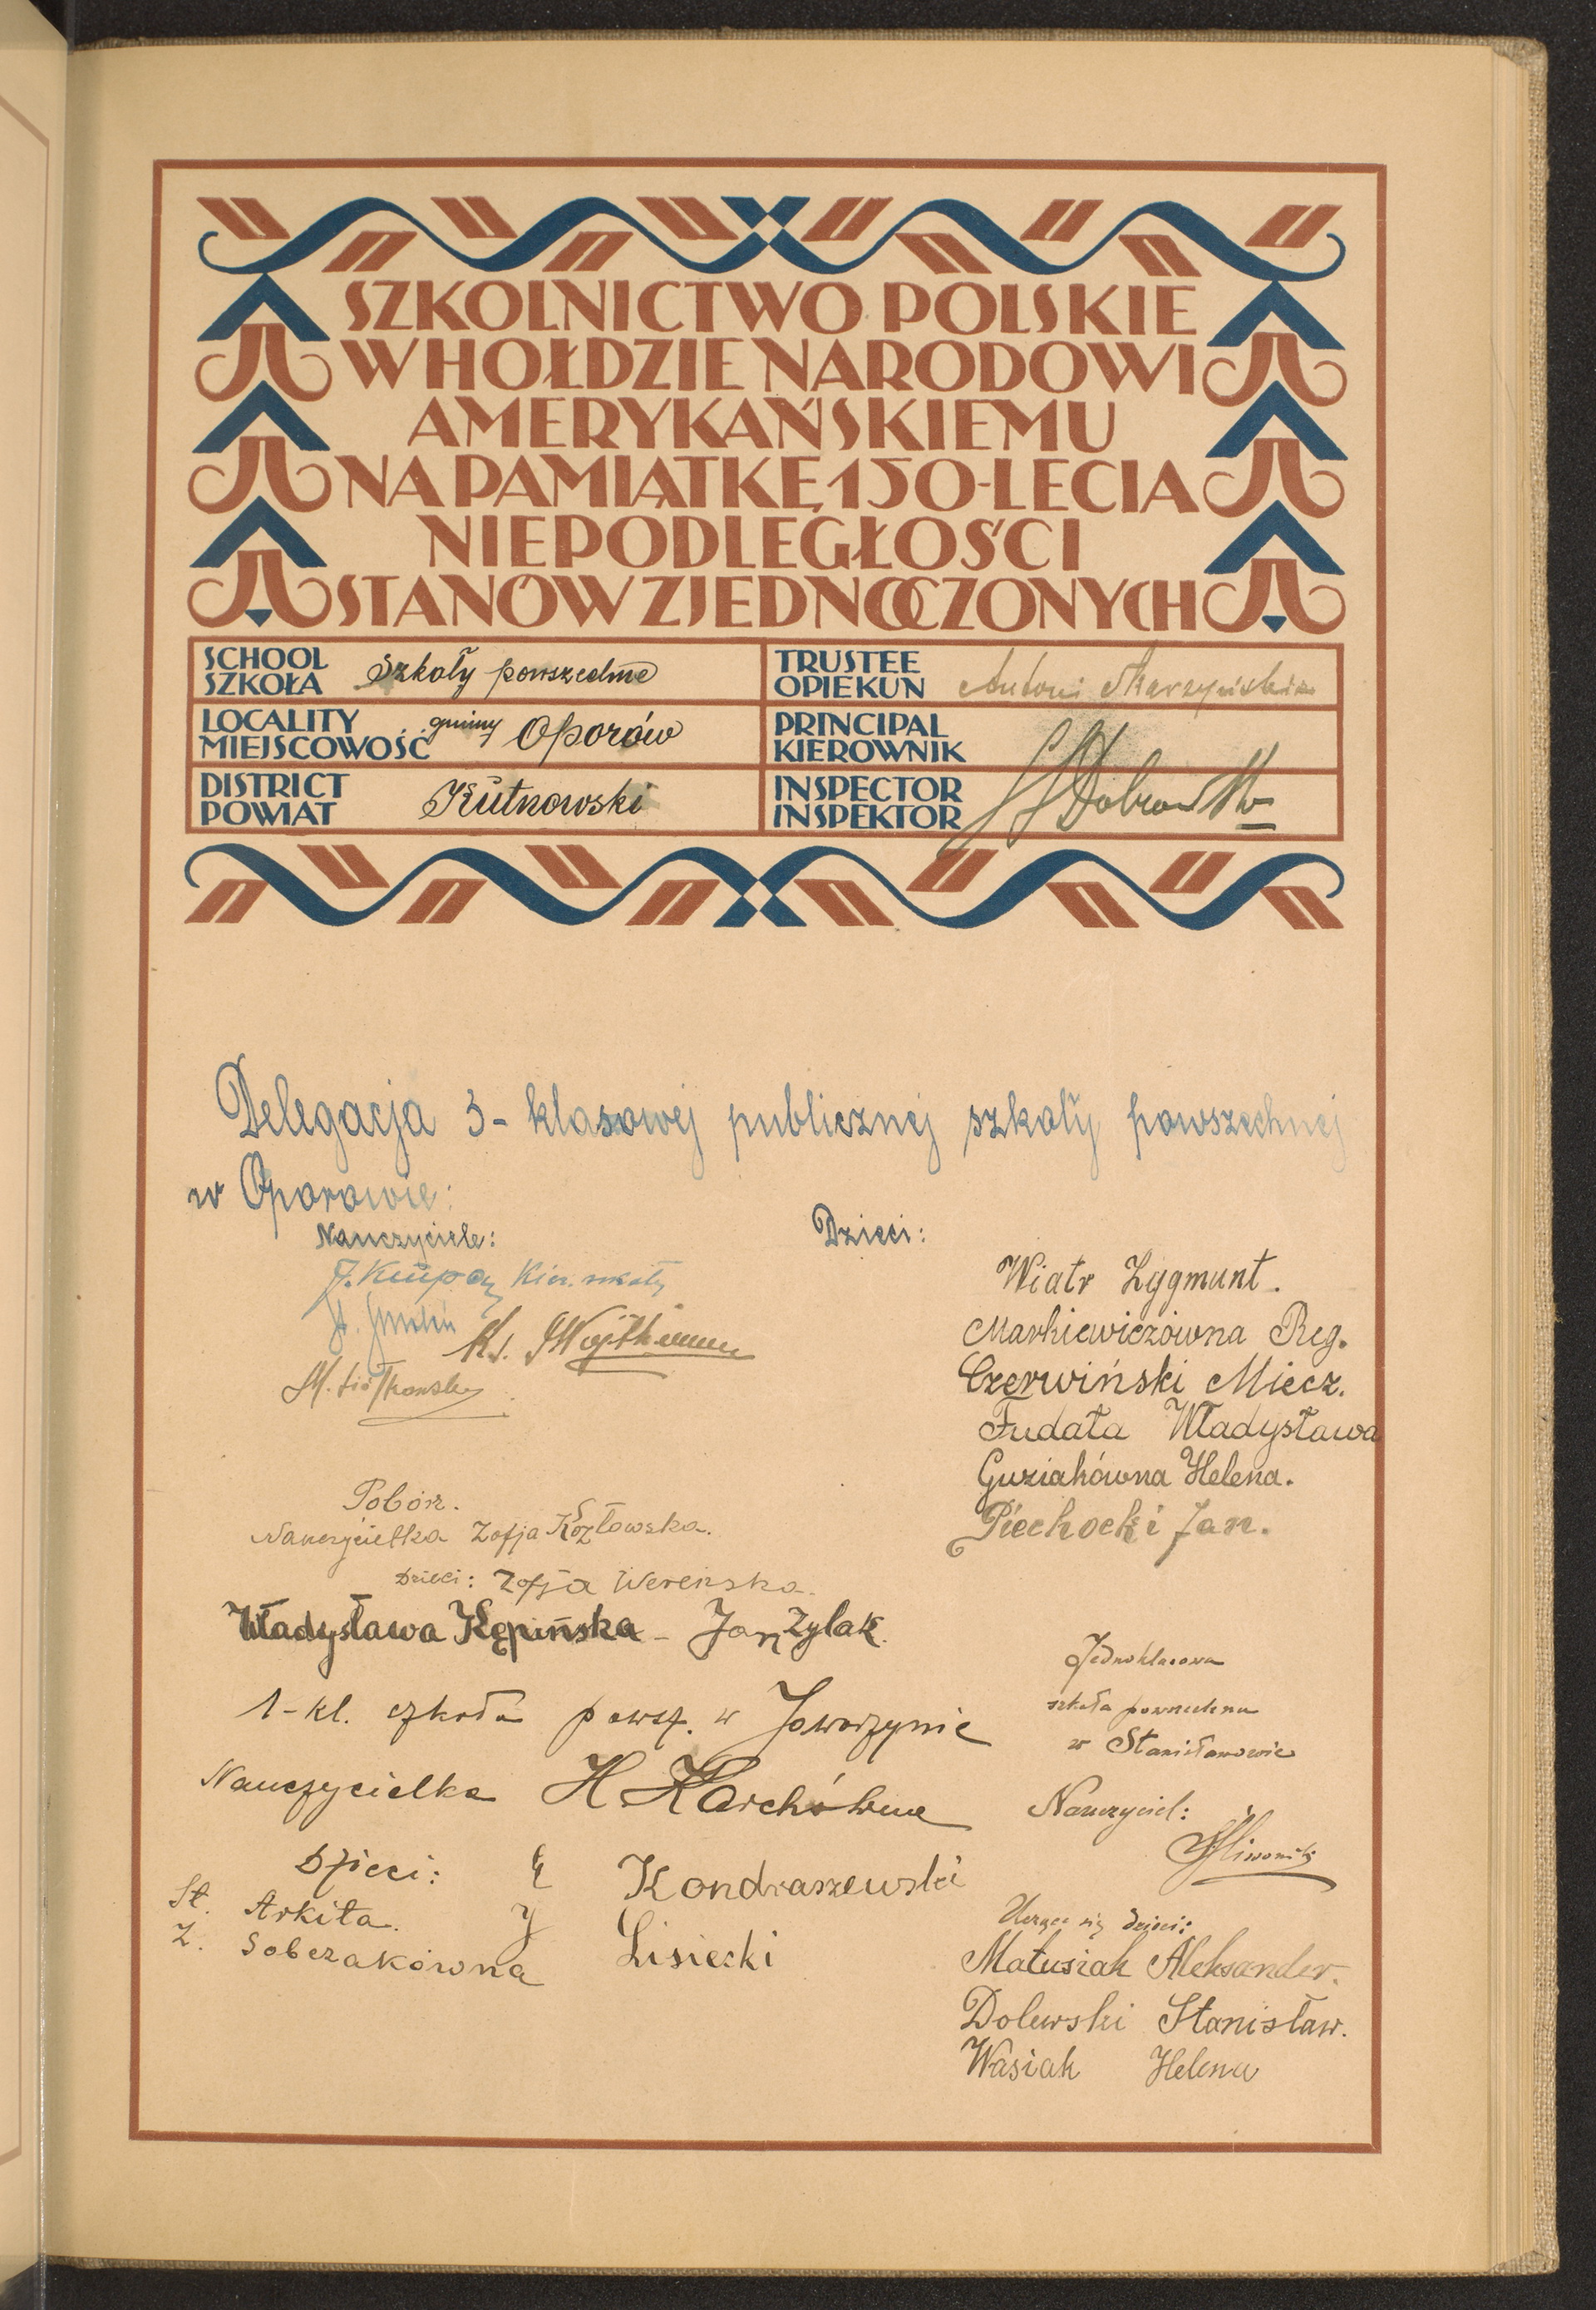 SZKOLNICTWO POLSKIE
W HOŁDZIE NARODOWI
AMERYKAŃSKIEMU
NA PAMIĄTKĘ 150-LECIA
NIEPODLEGŁOŚCI
STANÓW ZJEDNOCZONYCH
SCHOOL
SZKOŁA Szkoły powszechne
LOCALITY
MIEJSCOWOŚĆ gminy Oporów
DISTRICT
POWIAT Kutnowski
TRUSTEE
OPIEKUN Antoni Skarzyński
PRINCIPAL
KIEROWNIK
INSPECTOR
INSPEKTOR
Delegacja 3-klasowej publicznej szkoły powszechnej
w Oporowie:
Nauczyciele:
J. Krupa Kier. szkoły
Ks.
M.
Dzieci:
Wiatr Zygmunt.
Markiewiczówna Reg.
Czerwiński Miecz.
Fudała Władysława
Guziakówna Helena.
Piechocki Jan.
Pobórz.
Nauczycielka Zofja Kozłowska.
Dzieci: Zofja Wereńska.
Władysława Kępińska - Jan Zylak.
1-kl. szkoła powsz. w Jaworzynie
Nauczycielka H. Karchówna
Dzieci:
St. Arkita.
Z. Sobczakówna
Kondraszewski
J Lisiecki
Jednoklasowa
szkoła powszechna
w Stanisławowie
Nauczyciel:
Uczące się dzieci:
Matusiak Aleksander.
Dolewski Stanisław.
Wasiak Helena